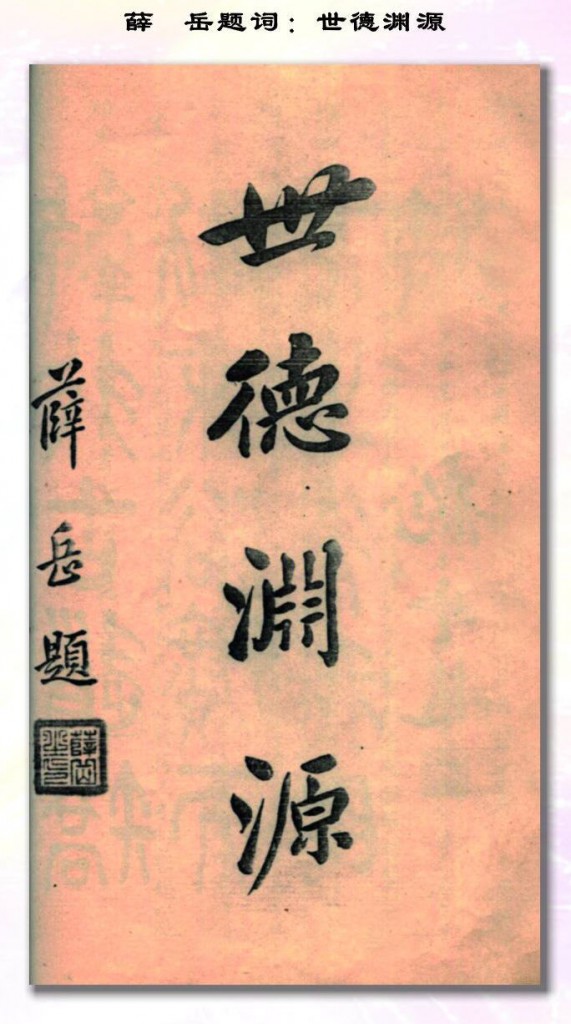 薛　岳题词：世德渊源
世德淵源
薛岳題